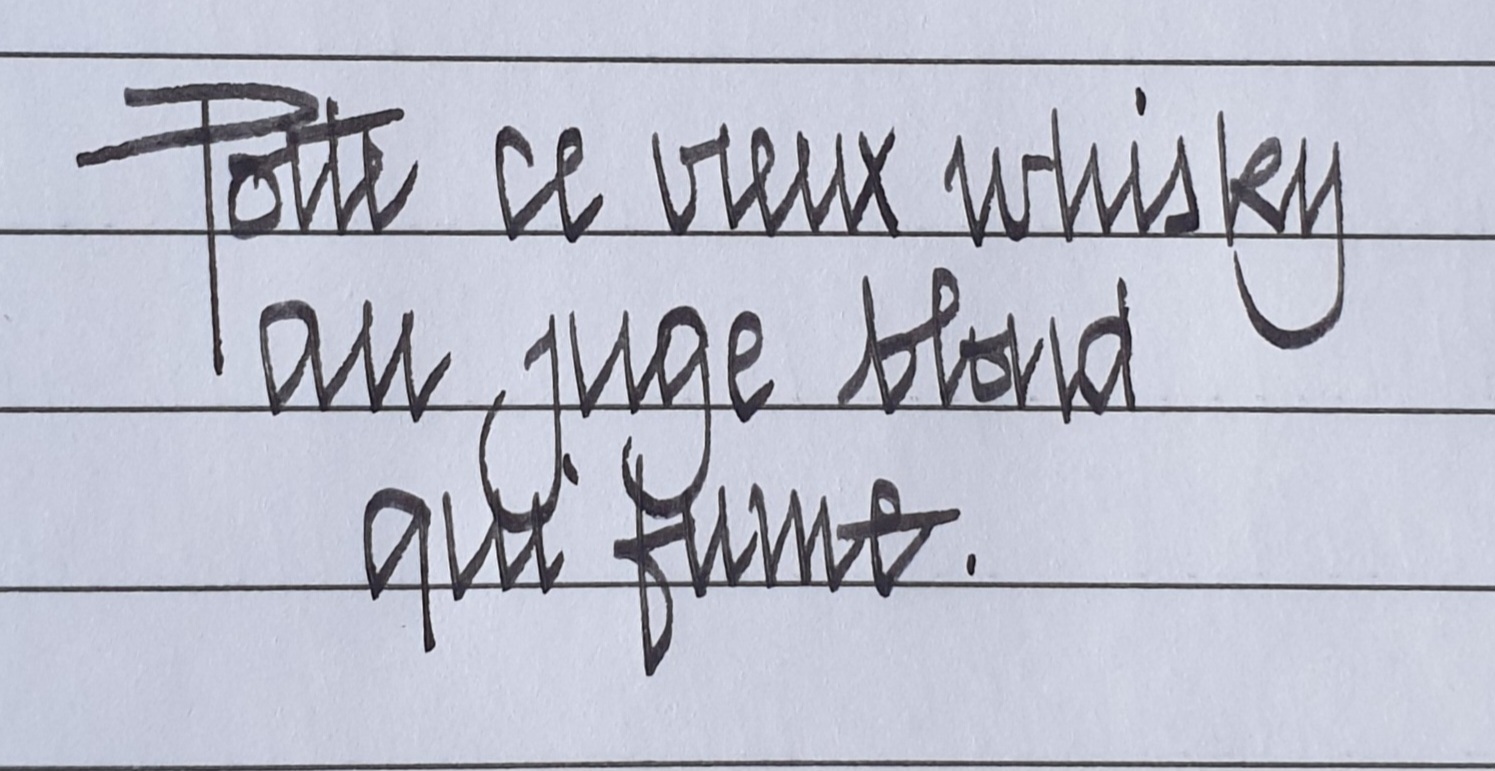 Porte ce vieux whisky
au juge blond
qui fume.